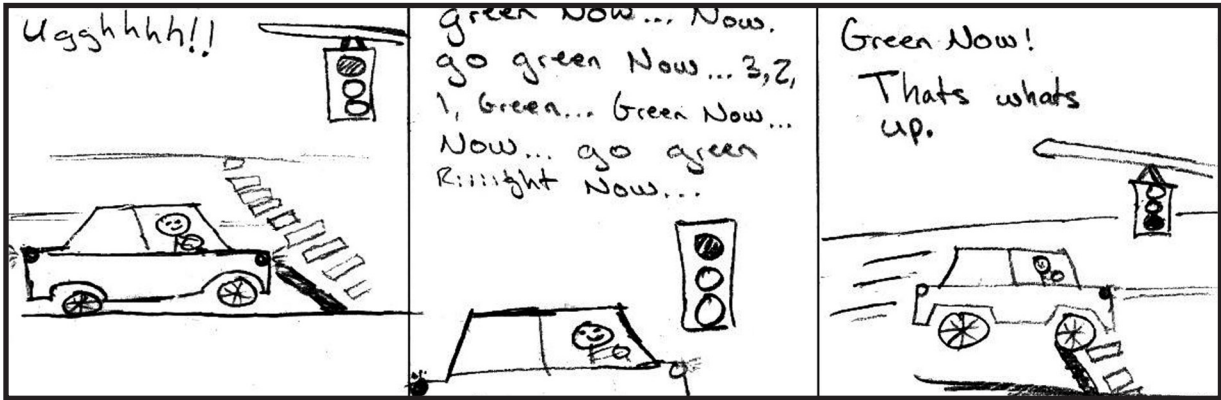 Ugghhhh!!
green Now... Now.
go green Now... 3, 2,
1, Green... Green Now...
Now... go green
Riiiight Now...
Green Now!
Thats whats
up.